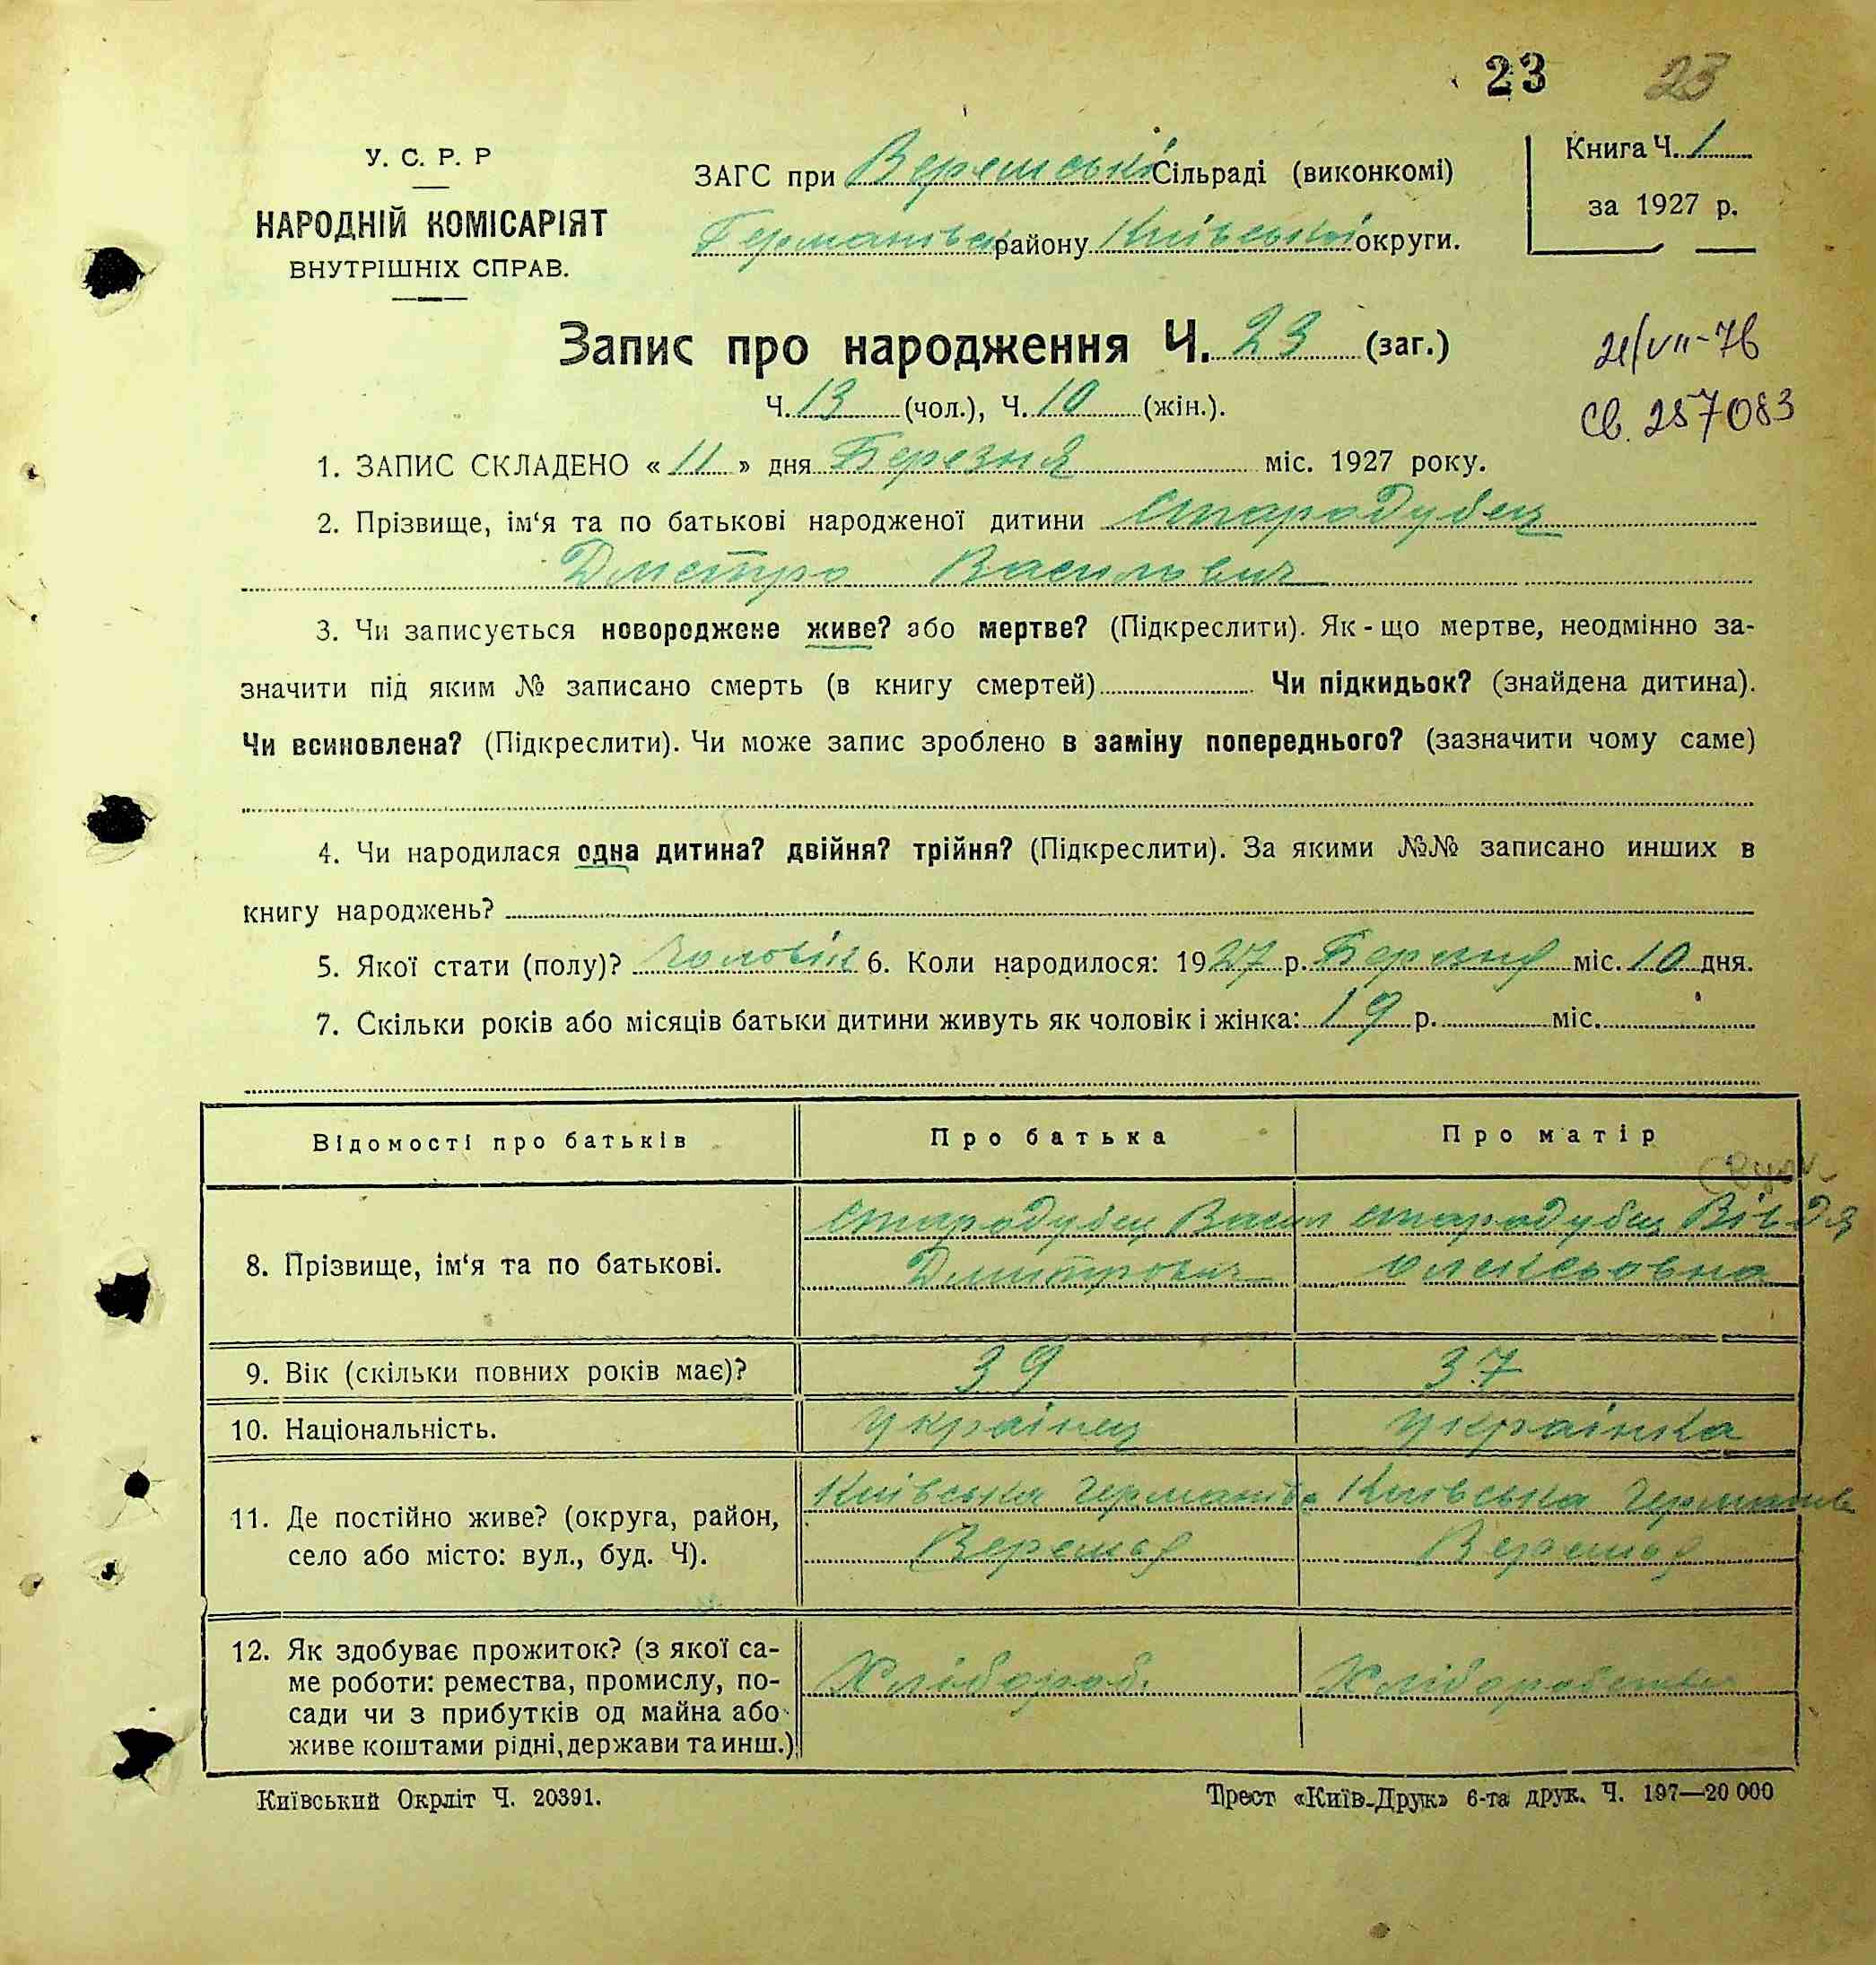 23 23
У. С. Р. Р
НАРОДНІЙ КОМІСАРІЯТ
ВНУТРІШНІХ СПРАВ.
ЗАГС при Веремській Сільраді (виконкомі)
Германівськ району Київської округи.
Книга Ч. 1
за 1927 р.
Запис про народження Ч. 23 (заг.)
Ч. 13 (чол.), Ч. 10 (жін.).
21/VII-76
Св. 257083
1. ЗАПИС СКЛАДЕНО « 11 » дня Березня міс. 1927 року.
2. Прізвище, ім'я та по батькові народженої дитини Стародубец
Дметро Василович
3. Чи записується новороджене живе? або мертве? (Підкреслити). Як-що мертве, неодмінно за-
значити під яким № записано смерть (в книгу смертей) Чи підкидьок? (знайдена дитина).
Чи всиновлена? (Підкреслити). Чи може запис зроблено в заміну попереднього? (зазначити чому саме)
4. Чи народилася одна дитина? двійня? трійня? (Підкреслити). За якими №№ записано инших в
книгу народжень?
5. Якої стати (полу)? Чоловік 6. Коли народилося: 1927 р. Березня міс. 10 дня.
7. Скільки років або місяців батьки дитини живуть як чоловік і жінка: 19 р. міс.
Відомості про батьків Про батька Про матір
8. Прізвище, ім'я та по батькові.
Стародубец Васил
Дмитрович
Стародубец Вівдя
Олексьовна
9. Вік (скільки повних років має)? 39 37
10. Національність. українец українка
11. Де постійно живе? (округа, район,
село або місто: вул., буд. Ч).
Київська Германівс
Веремья
Київська Германів
Веремья
12. Як здобуває прожиток? (з якої са-
ме роботи: ремества, промислу, по-
сади чи з прибутків од майна або
живе коштами рідні, держави та инш.)
Хлібороб.
Київський Окрліт Ч. 20391.
Трест «Київ-Друк» 6-та друк. Ч. 197—20 000